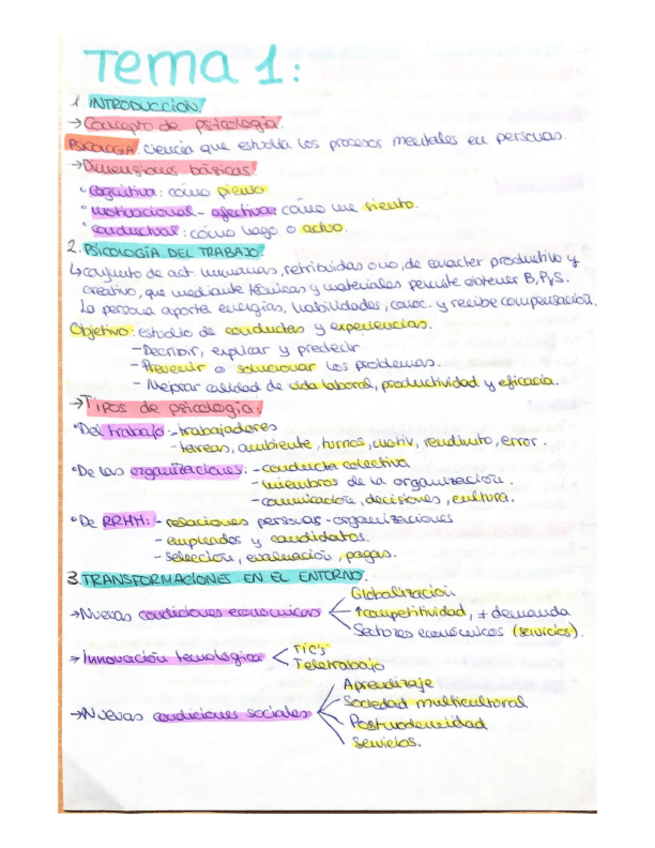 Tema 1:
1. INTRODUCCIÓN.
→ Concepto de psicología.
PSICOLOGÍA ciencia que estudia los procesos mentales en personas.
→ Dimensiones básicas:
• cognitiva: cómo pienso
• motivacional - afectiva: cómo me siento.
• conductual: cómo hago o actuo.
2. PSICOLOGÍA DEL TRABAJO:
↳ conjunto de act. humanas, retribuidas o no, de caracter productivo y
creativo, que mediante técnicas y materiales permite obtener B, P y S.
La persona aporta energías, habilidades, conoc. y recibe compensación.
Objetivo: estudio de conductas y experiencias.
- Describir, explicar y predecir
- Prevenir o solucionar los problemas.
- Mejorar calidad de vida laboral, productividad y eficacia.
→ Tipos de psicología:
• Del trabajo: - trabajadores
- tareas, ambiente, turnos, motiv, rendimto, error.
• De las organizaciones: - conducta colectiva
- miembros de la organización.
- comunicación, decisiones, cultura.
• De RRHH: - relaciones personas - organizaciones
- empleados y candidatos.
- selección, evaluación, pagas.
3. TRANSFORMACIONES EN EL ENTORNO.
Globalización
→ Nuevas condiciones económicas < ↑competitividad, + demanda
Sectores económicos (servicios).
→ Innovación tecnológica < TIC's
Teletrabajo
Aprendizaje
Sociedad multicultural
→ Nuevas condiciones sociales < Postmodernidad
Servicios.